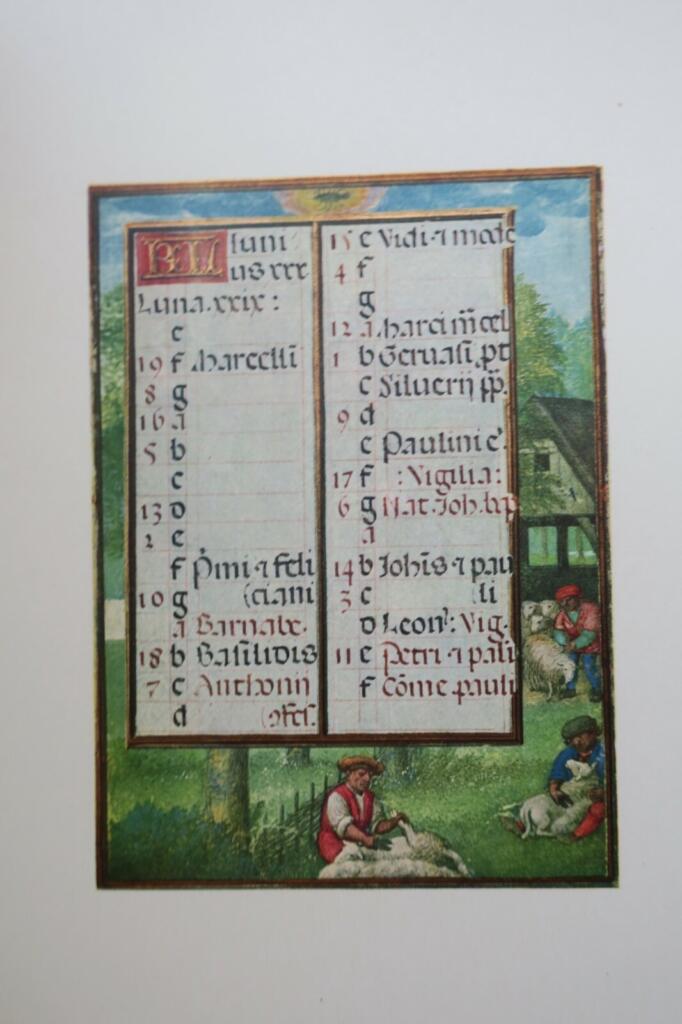 KL Iuni
us xxx
Luna.xxix:
e
19 f Marcellī
8 g
16 a
5 b
c
13 d
2 e
f p̄mi ⁊ feli
10 g (ciani
a Barnabe.
18 b Basilidis
7 c Anthonij
d (ɔfes.
15 e Vidi ⁊ mode
4 f
g
12 a Marci m̄cel
1 b Geruasi. pt
c Siluerij pp̄.
9 d
e Paulini e'.
17 f :Vigilia:
6 g Nat. Joh. bap
a
14 b Joh̄is ⁊ pau
3 c (li
d Leon': Vig.
11 e Petri ⁊ pali
f Cōme pauli